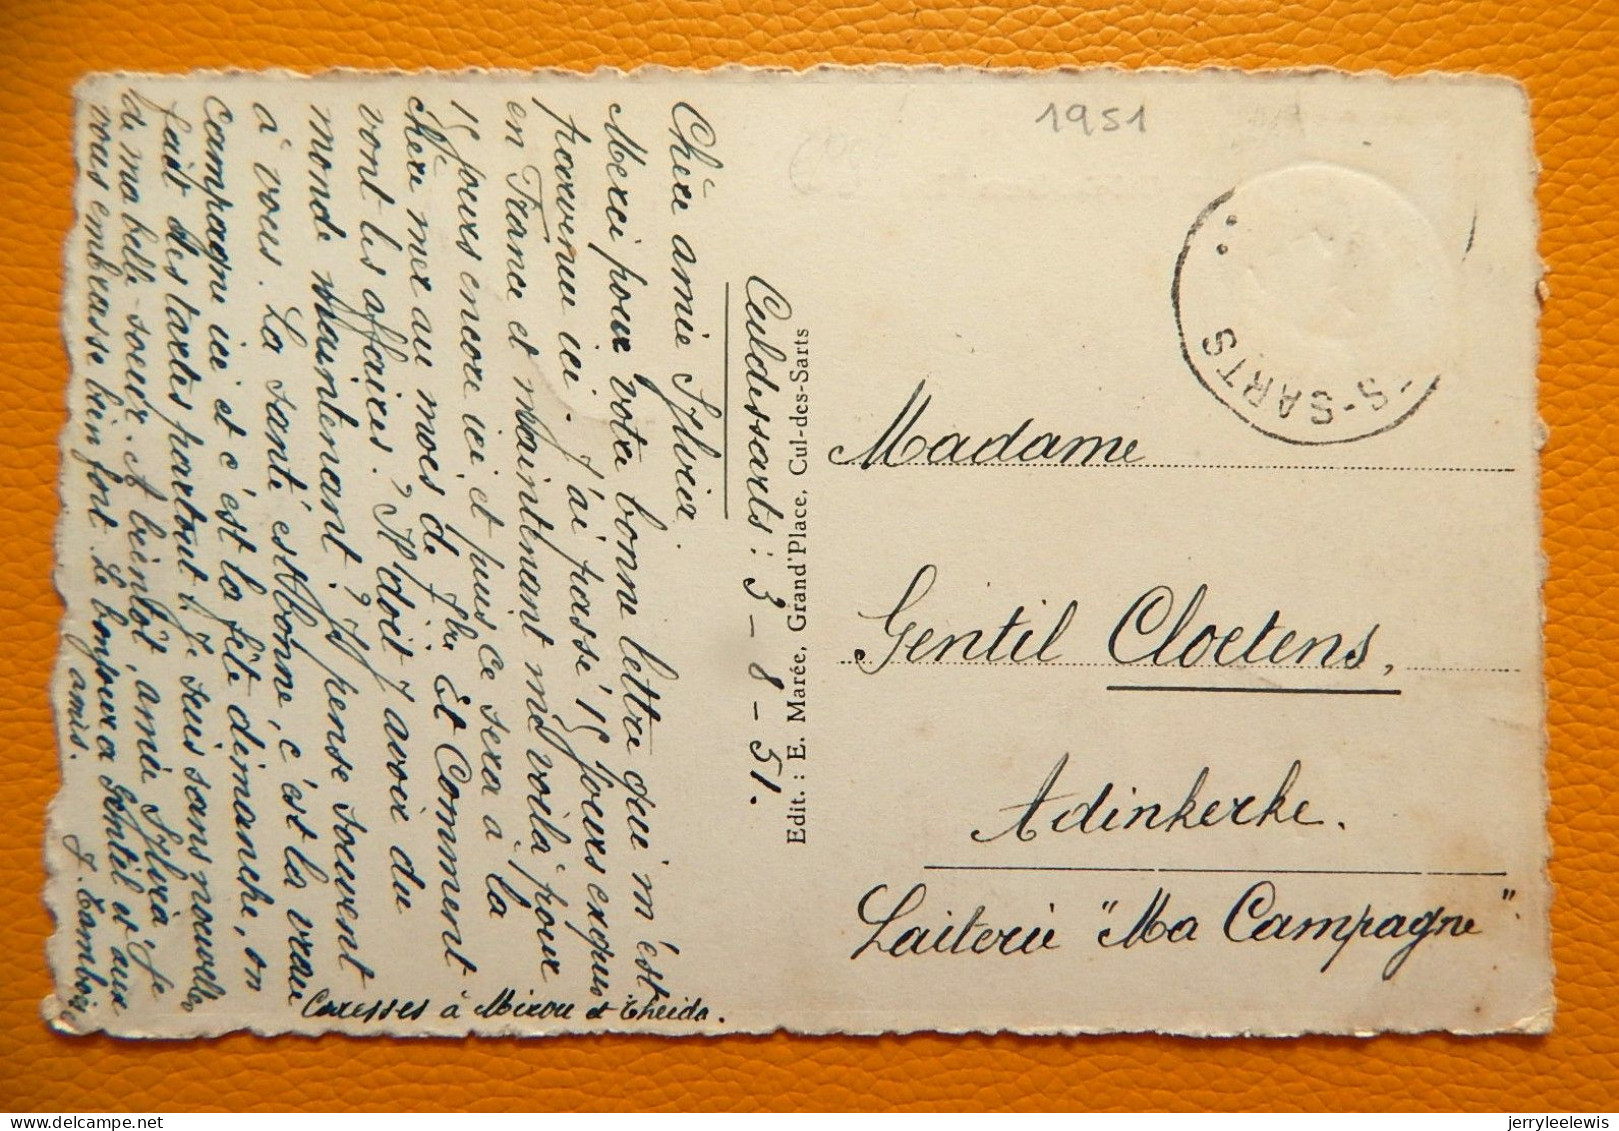 1951
S-SARTS
Culdessarts : 3 - 8 - 51.
Chère amie Sylvia.
Merci pour vote bonne lettre que m'est
parvenu ici. J'ai passé 15 jours exquis
en France et maintenant me voilà pour
15 jours encore ici et puis ce sera à la
chère mer au mois de 7bre Et Comment
vont les affaires? Il doit y avoir du
monde maintenant? Je pense souvent
à vous. La santé est bonne, c'est la vraie
campagne ici et c'est la fête dimanche, on
fait des tartes partout. Je suis sans nouvelles
de ma belle-soeur. A bientôt, amie Sylvia, Je
vous embrasse bien fort. Le bonjour à Gentil et aux
amis.
Caresses à Mirou et Theida.
Edit. : E. Marée, Grand'Place, Cul-des-Sarts
Madame
Gentil Cloetens,
Adinkerke.
Laiterie "Ma Campagne"
jerryleelewis